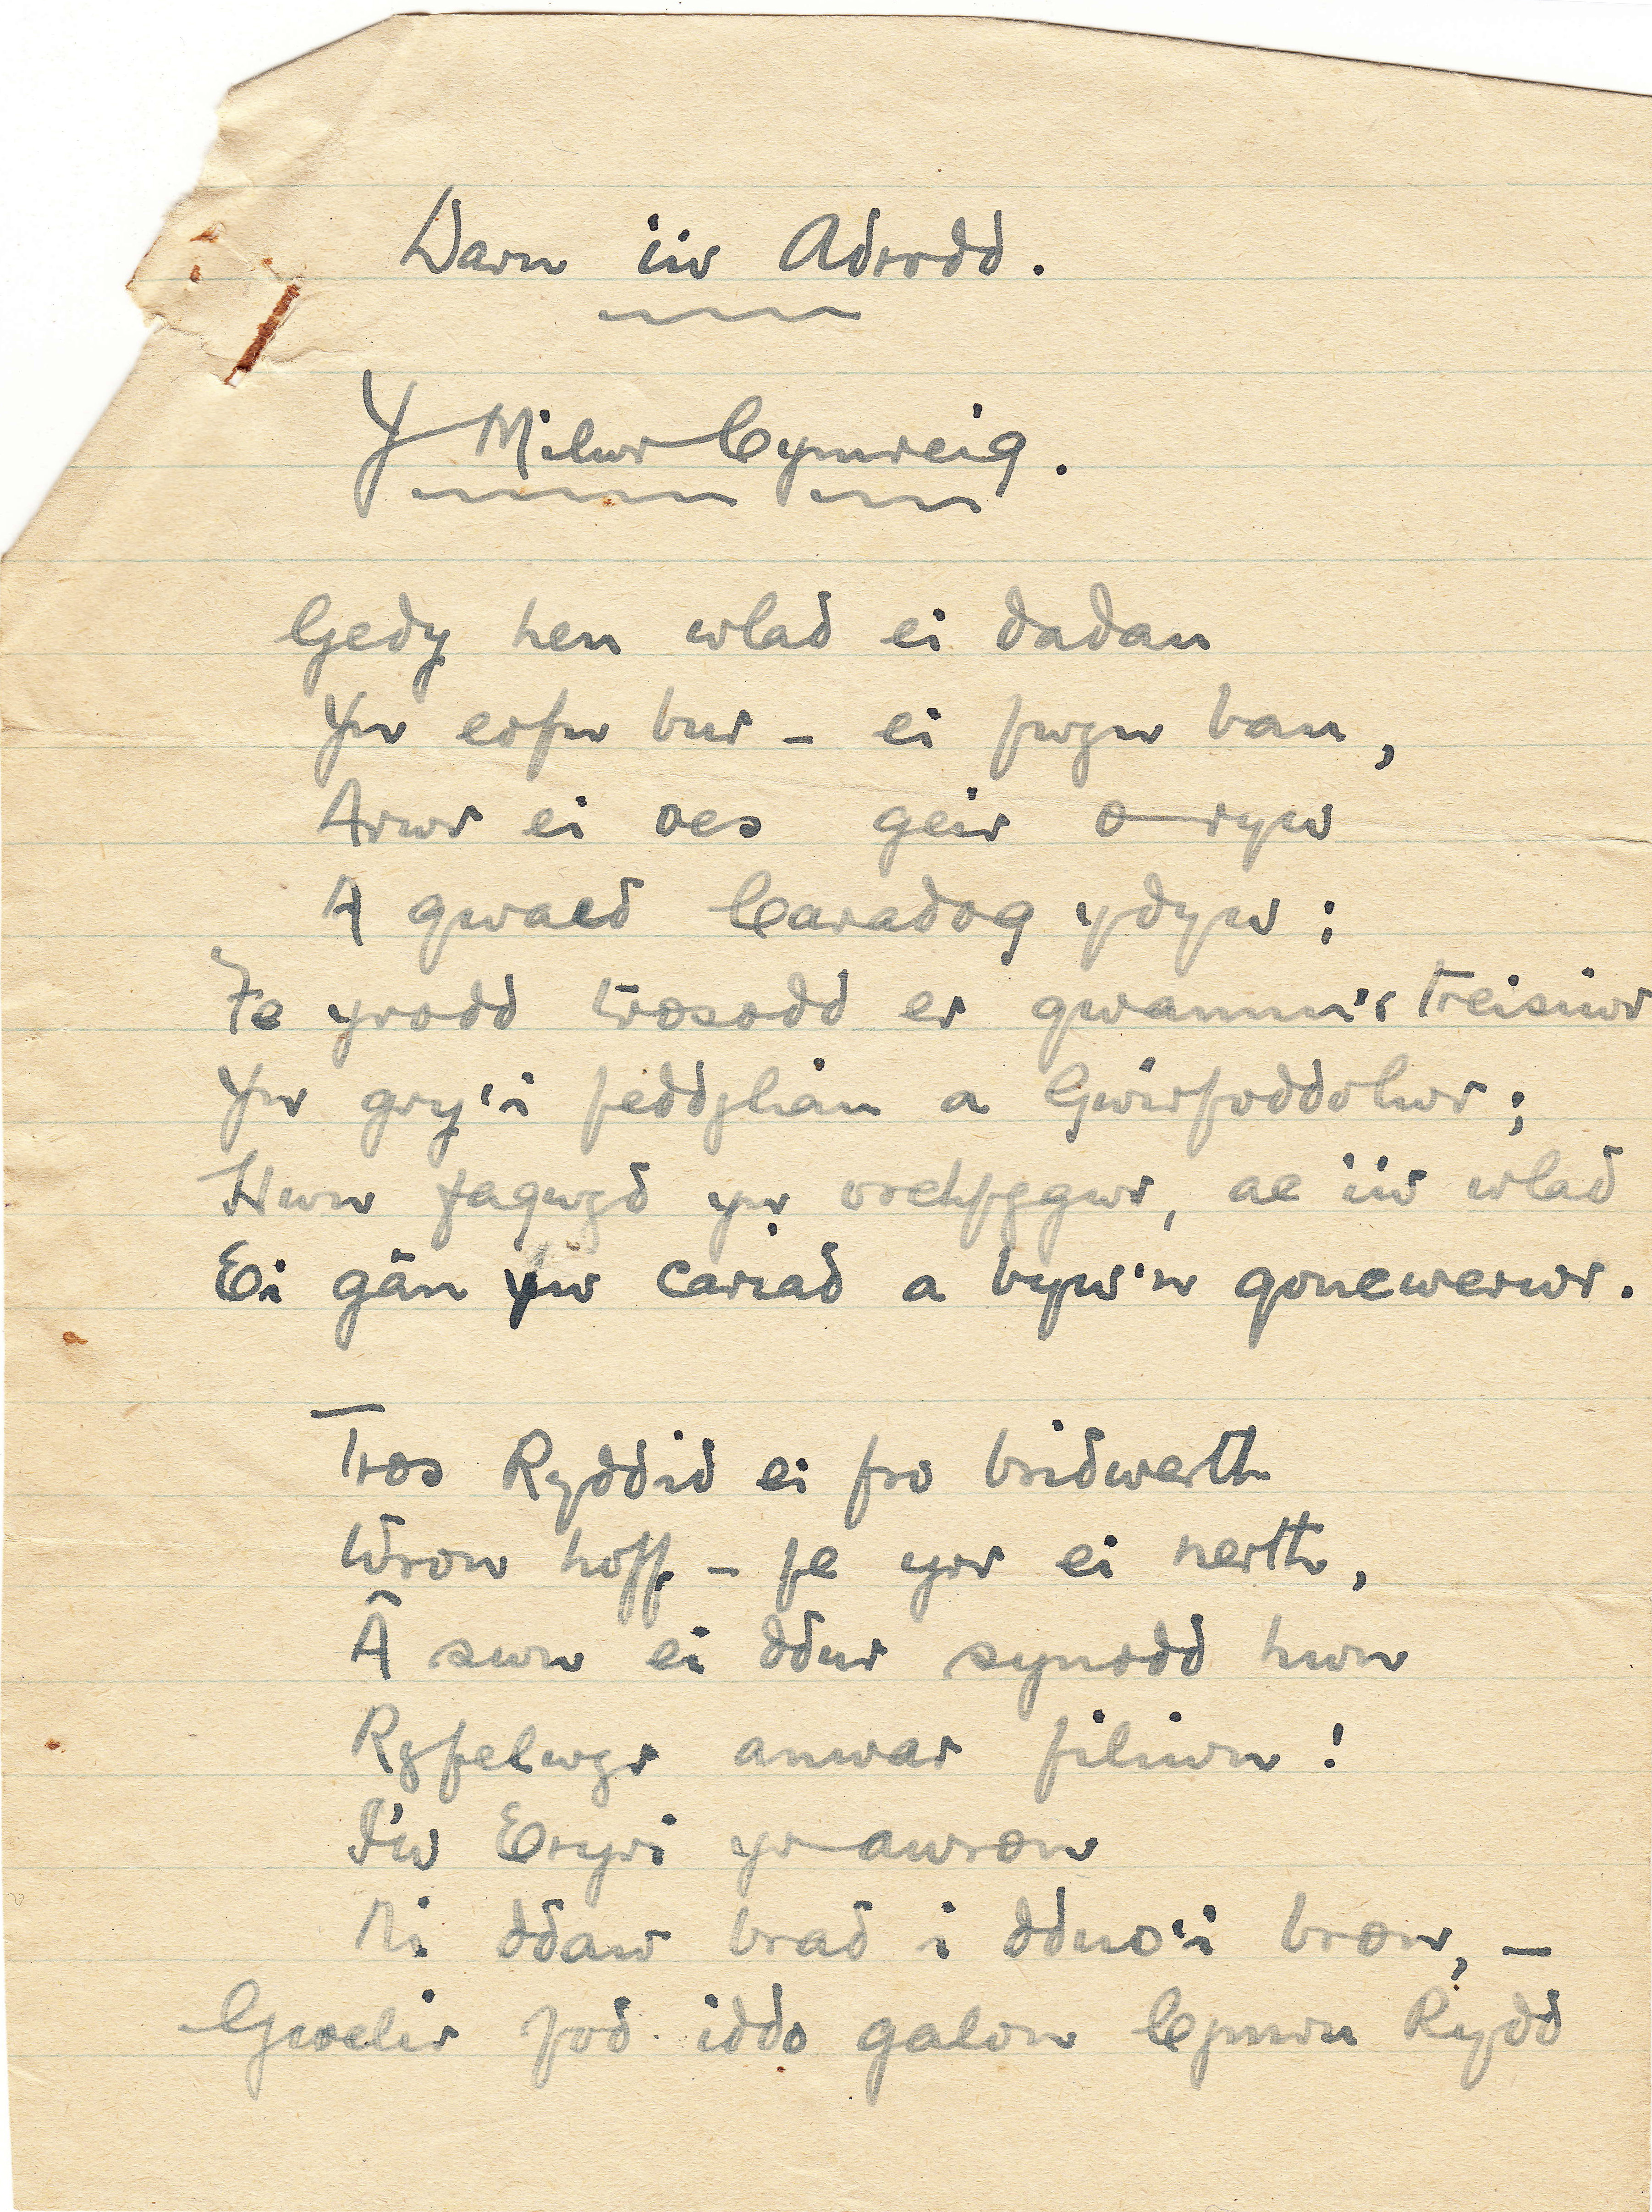 Darn i'w Adrodd.
Y Milwr Cymreig.
Gedy hen wlad ei dadau
Yn eofn bur - ei fwyn bau,
Arwr ei oes geir o ryw
A gwaed Caradog ydyw;
Fe yrodd trosodd er gwannu'r treisiwr
Yn gry'i feddyliau a Gwirfoddolwr;
Hwn fagwyd yn orchfygwr, ac i'w wlad
Ei gân yw cariad a byw'n goncwerwr.
Tros Ryddid ei fro bridwerth
Wron hoff - fe yrr ei nerth,
Â swn ei ddur synodd hwn
Ryfelwyr anwar filiwn!
I'w Eryri yr awron
Ni ddaw brad i dduo'i bron, -
Gwelir fod iddo galon Cymru Rydd